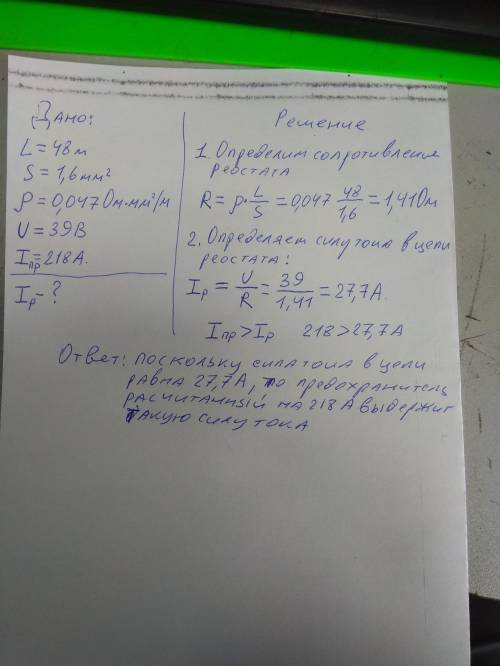 Дано:
L = 48 м
S = 1,6 мм²
ρ = 0,047 Ом·мм²/м
U = 39 В
Iпр = 218 А.
Iр - ?
Решение
1. Определим сопротивление
реостата
R = ρ · L/S = 0,047 48/1,6 = 1,41 Ом
2. Определяем силу тока в цепи
реостата:
Iр = U/R = 39/1,41 = 27,7 А.
Iпр > Iр 218 > 27,7 А
Ответ: поскольку сила тока в цепи
равна 27,7 А, то предохранитель
расчитанный на 218 А выдержит
такую силу тока